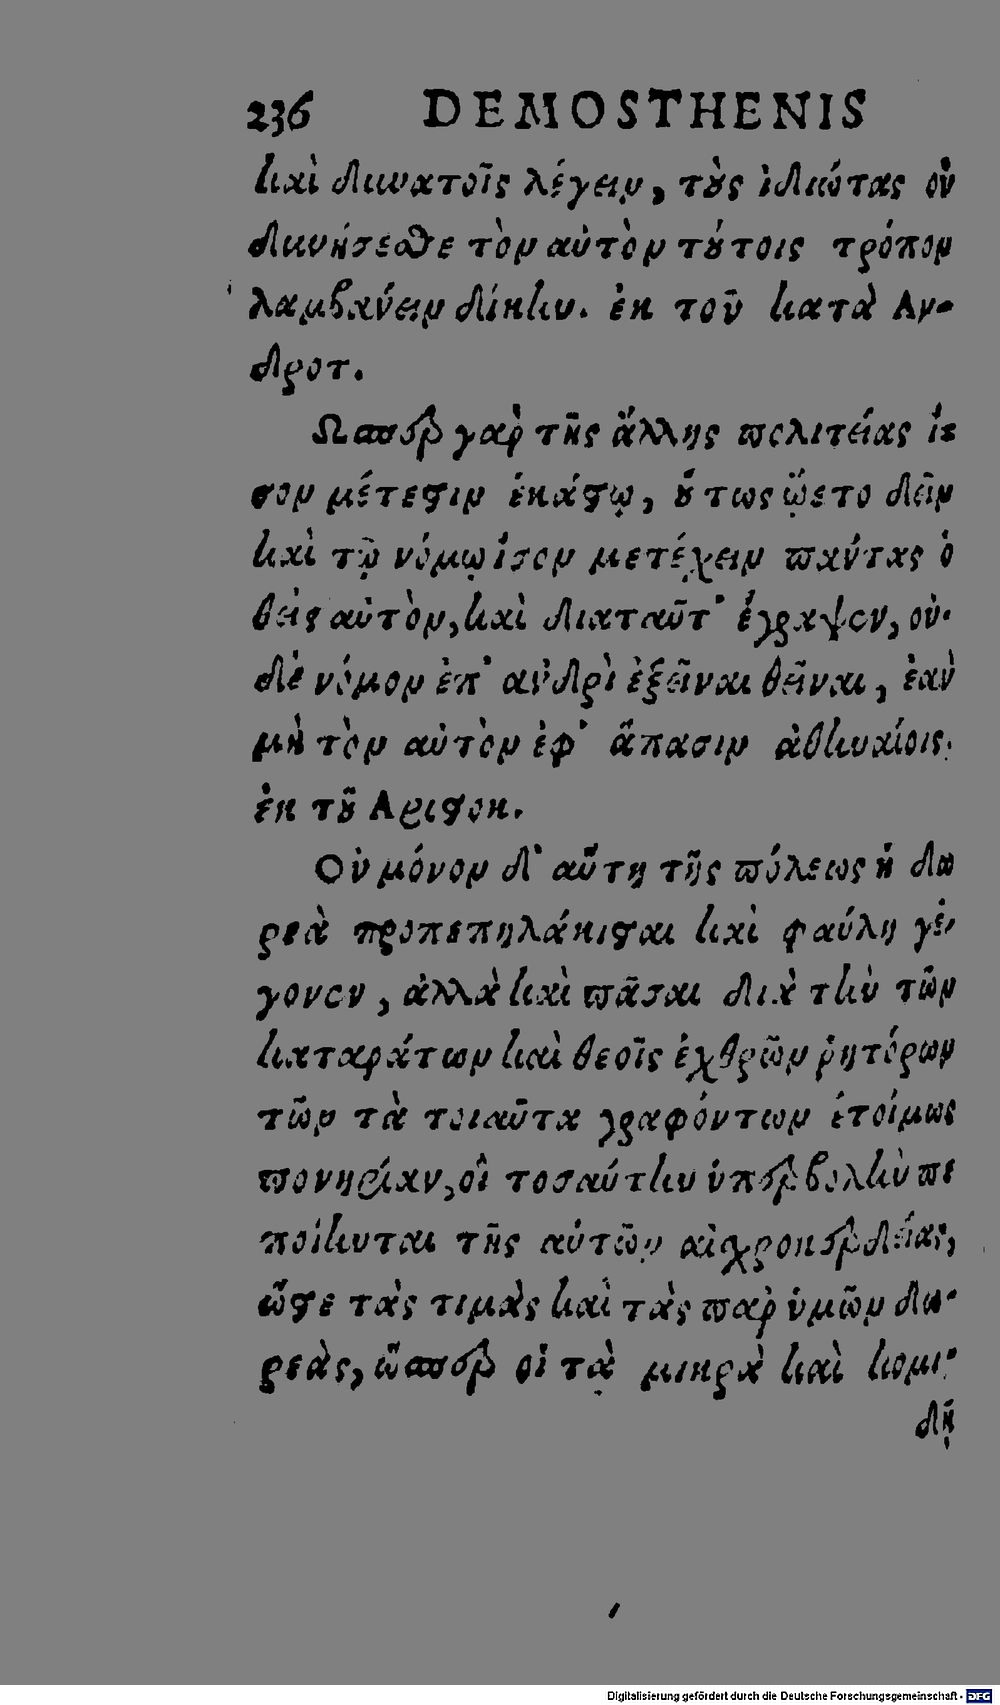 236 DEMOSTHENIS
καὶ δυνατοῖς λέγειν, τοὺς ἰδιώτας οὐ
δυνήσεσθε τὸν αὐτὸν τούτοις τρόπον
λαμβάνειν δίκην. ἐκ τοῦ κατὰ Αν-
δροτ.
Ωσπερ γαρ̀ τῆς ἄλλης πολιτείας ἴ-
σον μέτεστιν ἑκάστῳ, οὕτως ᾤετο δεῖν
καὶ τῷ νόμῳ ἴσον μετέχειν πάντας ὁ
θεὶς αὐτὸν, καὶ διαταῦτ᾽ ἔγραψεν, οὐ-
δὲ νόμον ἐπ᾽ ἀνδρὶ ἐξεῖναι θεῖναι, ἐὰν
μὴ τὸν αὐτὸν ἐφ᾽ ἅπασιν ἀθηναίοις.
ἐκ τοῦ Αριστοκ.
Οὐ μόνον δ᾽ αὕτη τῆς πόλεως ἡ δω
ρεὰ προπεπηλάκισται καὶ φαύλη γέ-
γονεν, ἀλλὰ καὶ πᾶσαι διὰ τὴν τῶν
καταράτων καὶ θεοῖς ἐχθρῶν ῥητόρων
τῶν τὰ τοιαῦτα γραφόντων ἑτοίμως
πονηρίαν, οἳ τοσαύτην ὑπερβολὴν πε
ποίηνται τῆς αὑτῶν αἰσχροκερδείας,
ὥστε τὰς τιμὰς καὶ τὰς παρ̀ ὑμῶν δω-
ρεὰς, ὥσπερ οἱ τὰ μικρὰ καὶ κομι-
δῇ
Digitalisierung gefördert durch die Deutsche Forschungsgemeinschaft - DFG